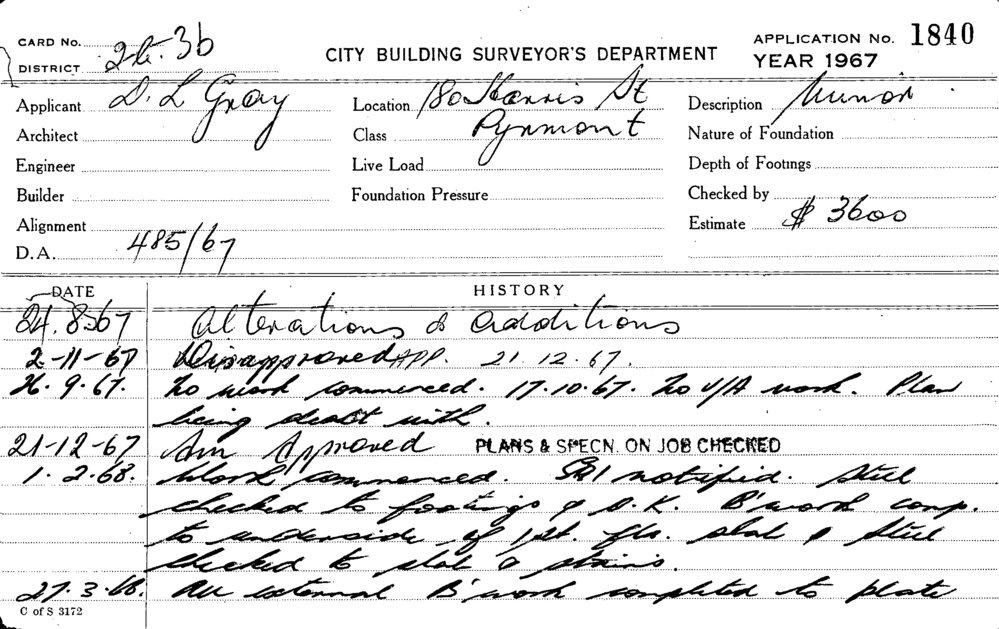 CARD No. 2b. 3b
DISTRICT
CITY BUILDING SURVEYOR'S DEPARTMENT
APPLICATION No. 1840
YEAR 1967
Applicant D. L Gray
Location 180 Harris St
Description Minor
Architect
Class Pyrmont
Nature of Foundation
Engineer
Live Load
Depth of Footings
Builder
Foundation Pressure
Checked by
Alignment
Estimate $ 3600
D.A. 485/67
DATE HISTORY
24.8.67 Alterations & additions
2-11-67 Disapproved APP. 21.12.67.
26.9.67. No work commenced. 17.10.67. No work. Plan
being dealt with.
21-12-67 Am Approved PLANS & SPECN. ON JOB CHECKED
1.2.68. Work commenced. notified. Steel
checked to footings & O.K. B'work comp.
to underside of 1st. flr. slab & Steel
checked to slab & stairs.
27.3.68. All external B'work completed to plate
C of S 3172